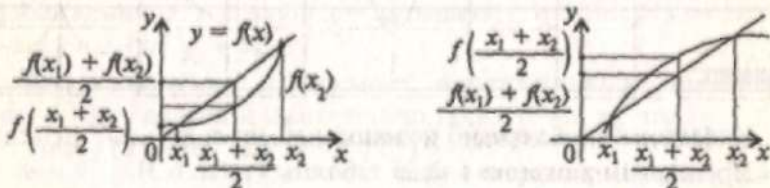 y
y = f(x)
f(x₁) + f(x₂)
2
f(x₂)
f(x₁ + x₂)
2
0 x₁ x₁ + x₂ x₂ x
2
y
f(x₁ + x₂)
2
f(x₁) + f(x₂)
2
0 x₁ x₁ + x₂ x₂ x
2